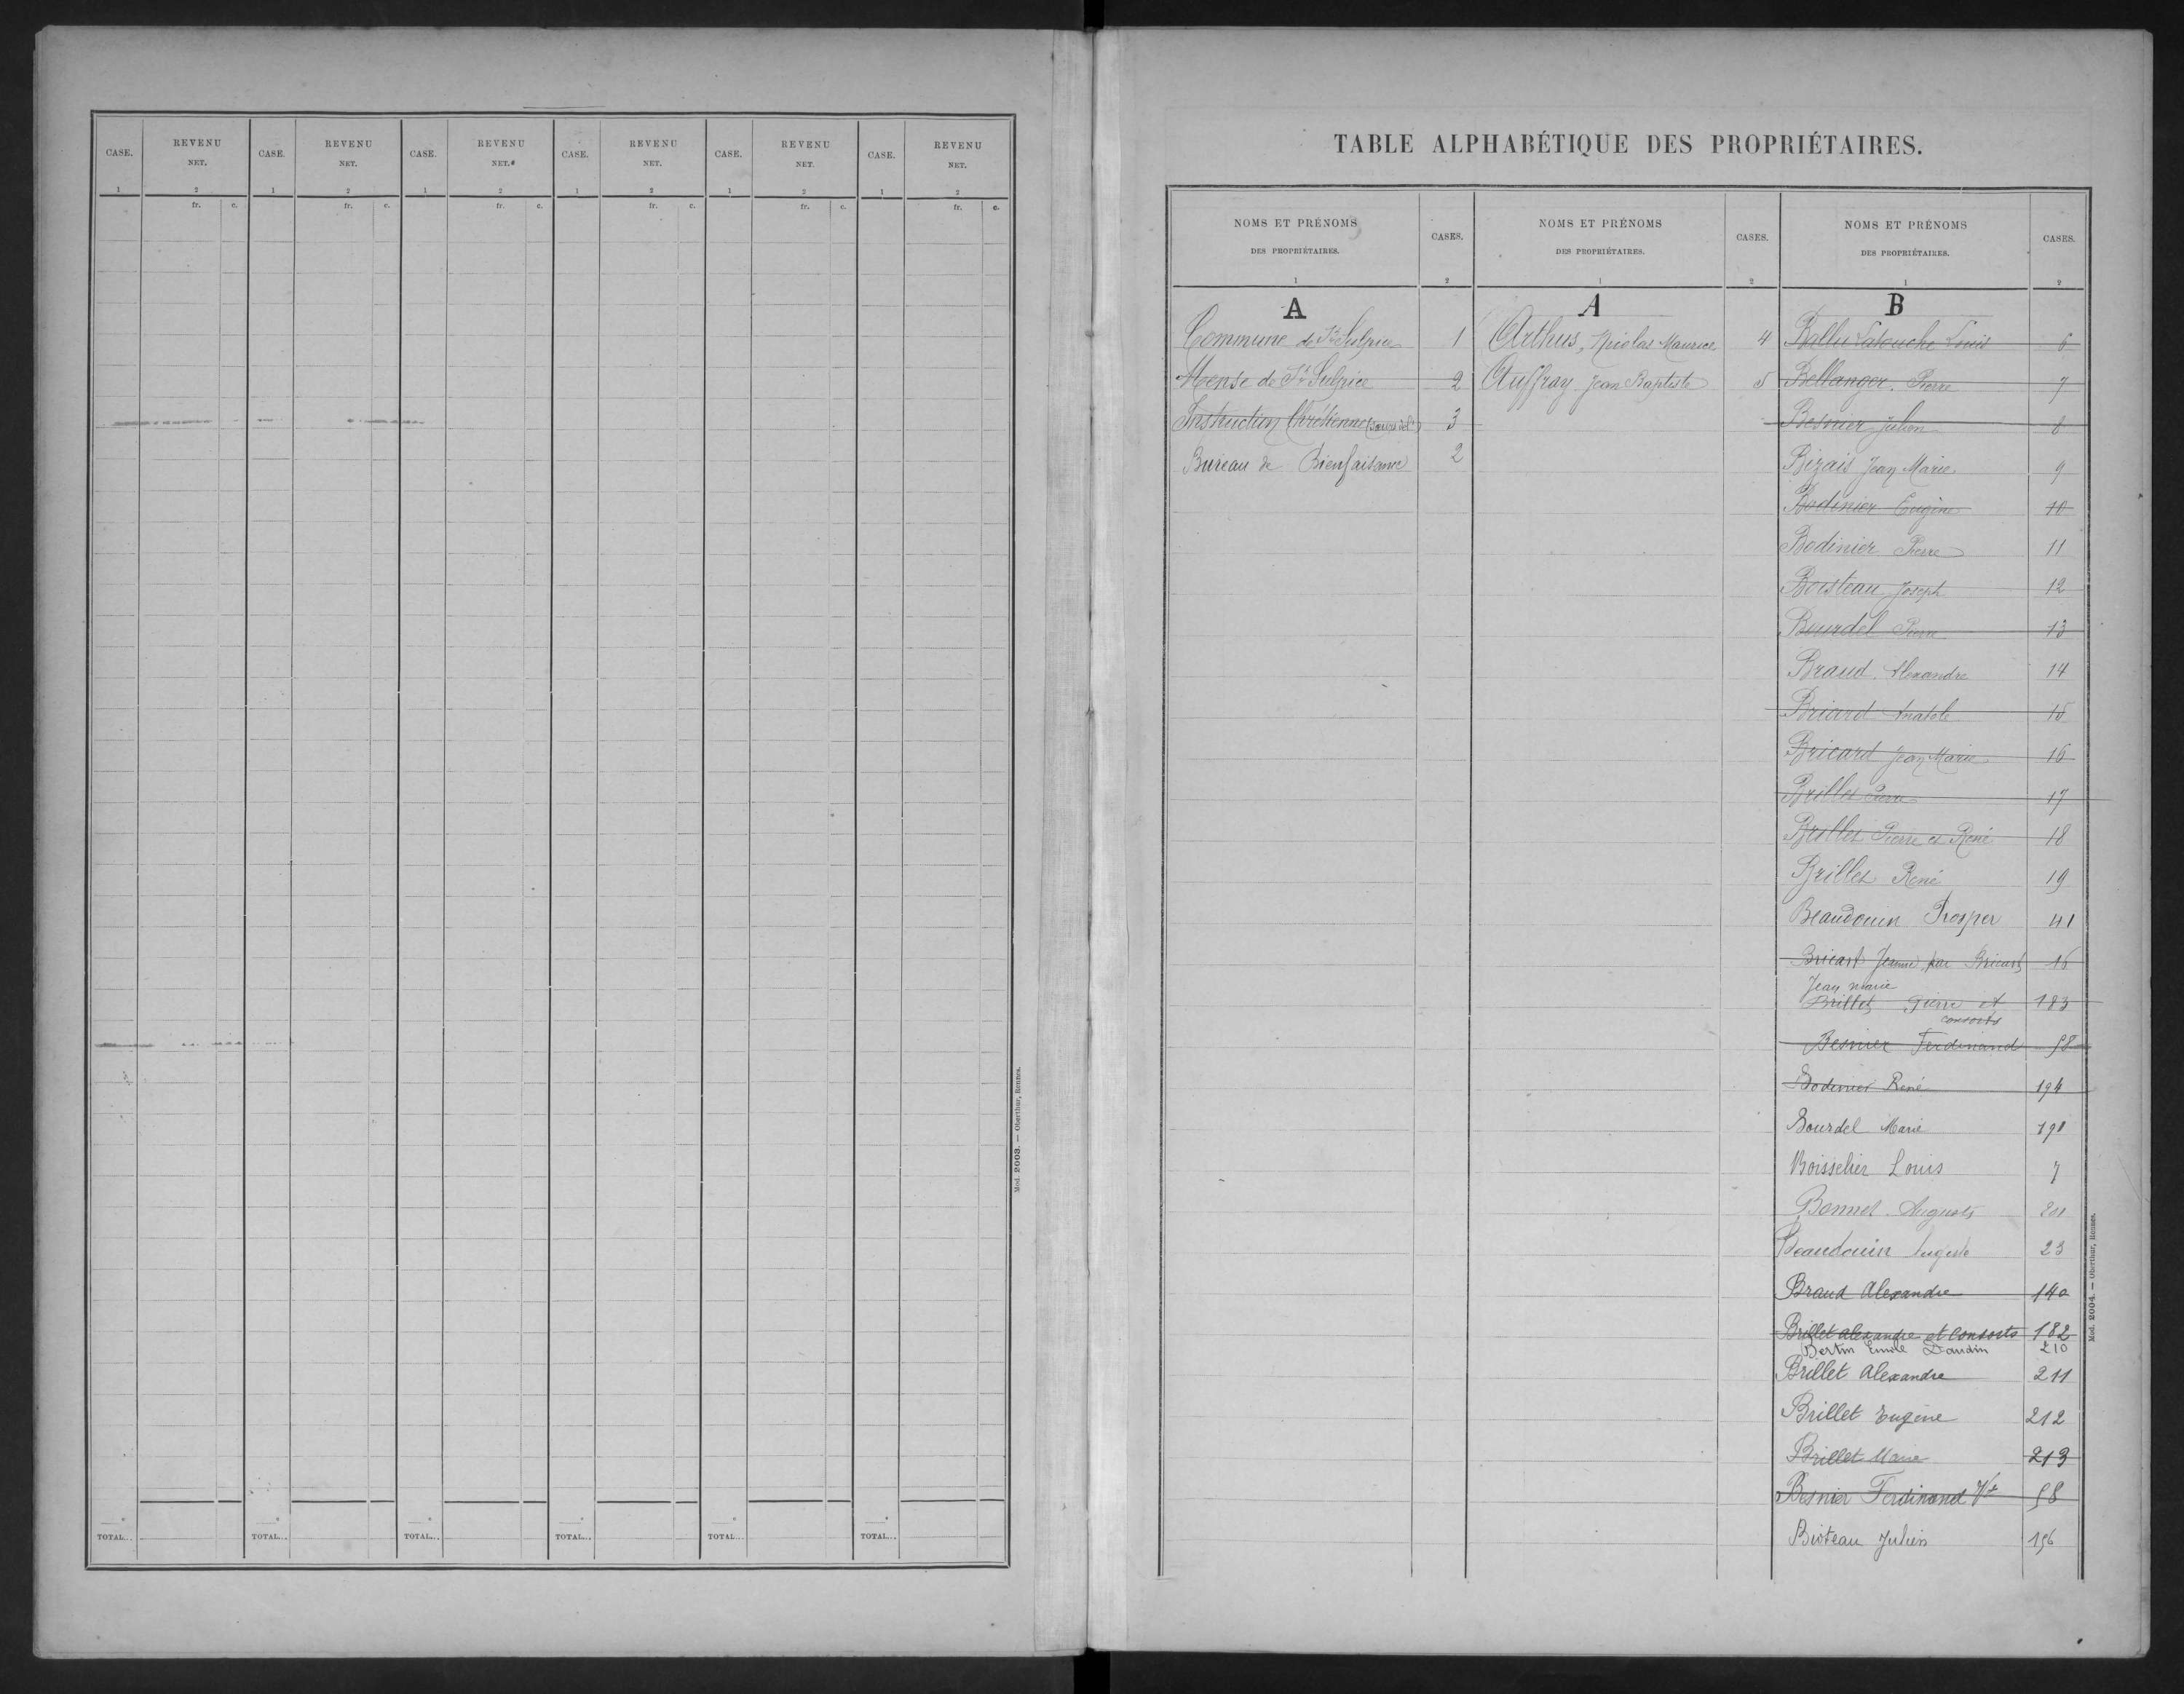 CASE. REVENU NET. CASE. REVENU NET. CASE. REVENU NET. CASE. REVENU NET. CASE. REVENU NET. CASE. REVENU NET.
1 2 1 2 1 2 1 2 1 2 1 2
fr. c. fr. c. fr. c. fr. c. fr. c. fr. c.
TOTAL... TOTAL... TOTAL... TOTAL... TOTAL... TOTAL...
Mod. 2003. — Oberthur, Rennes.
TABLE ALPHABÉTIQUE DES PROPRIÉTAIRES.
NOMS ET PRÉNOMS DES PROPRIÉTAIRES. CASES. NOMS ET PRÉNOMS DES PROPRIÉTAIRES. CASES. NOMS ET PRÉNOMS DES PROPRIÉTAIRES. CASES.
1 2 1 2 1 2
A
Commune de St Sulpice 1
Mense de St Sulpice 2
Instruction Chrétienne 3
Bureau de Bienfaisance 2
A
Arthus, Nicolas Maurice 4
Auffray Jean Baptiste 5
B
Ballu Latouche Louis 6
Bellanger Pierre 7
Besnier Julien 8
Bizais Jean Marie 9
Bodinier Eugène 10
Bodinier Pierre 11
Boisteau Joseph 12
Bourdel Pierre 13
Braud Alexandre 14
Briard Anatole 15
Bricard Jean Marie 16
Brillet Pierre 17
Brillet Pierre et René 18
Brillet René 19
Beaudouin Prosper 41
Bricard Jeanne par Bricard 16
Jean marie
Brillet Pierre et 183
consorts
Besnier Ferdinand 58
Bodinier René 194
Bourdel Marie 191
Boisselier Louis 7
Bonnet Auguste 201
Beaudouin Auguste 23
Braud Alexandre 140
Brillet Alexandre et Consorts 182
Bertin Emile Daudin 210
Brillet Alexandre 211
Brillet Eugène 212
Brillet Marie 213
Besnier Ferdinand Vve 58
Bioteau Julien 156
Mod. 2004. — Oberthur, Rennes.